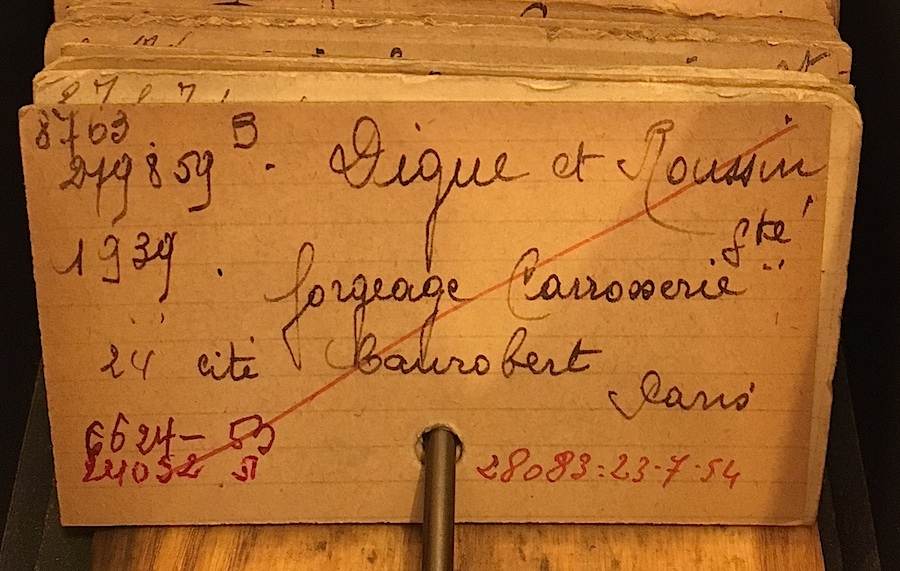 8763 B
279859 · Digue et Roussin
Sté
1939 · forgeage Carrosserie
24 cité Canrobert
Paris
6624 – 53
24052 51
28083:23·7·54